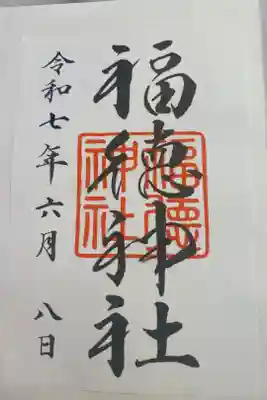 福徳神社
福德神社
令和七年六月八日